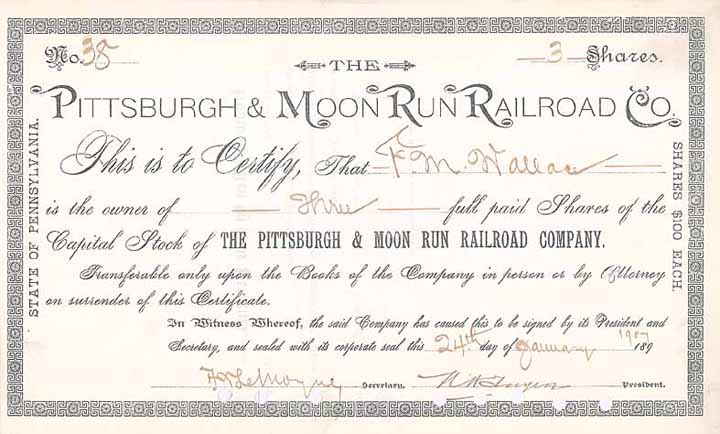 No. 38
3 Shares.
THE
PITTSBURGH & MOON RUN RAILROAD CO.
This is to Certify, That F. M. Wallace
is the owner of Three full paid Shares of the
Capital Stock of THE PITTSBURGH & MOON RUN RAILROAD COMPANY.
Transferable only upon the Books of the Company in person or by Attorney
on surrender of this Certificate.
In Witness Whereof, the said Company has caused this to be signed by its President and
Secretary, and sealed with its corporate seal this 24th day of January 1907 189
LeMoyne Secretary. President.
STATE OF PENNSYLVANIA.
SHARES $100 EACH.